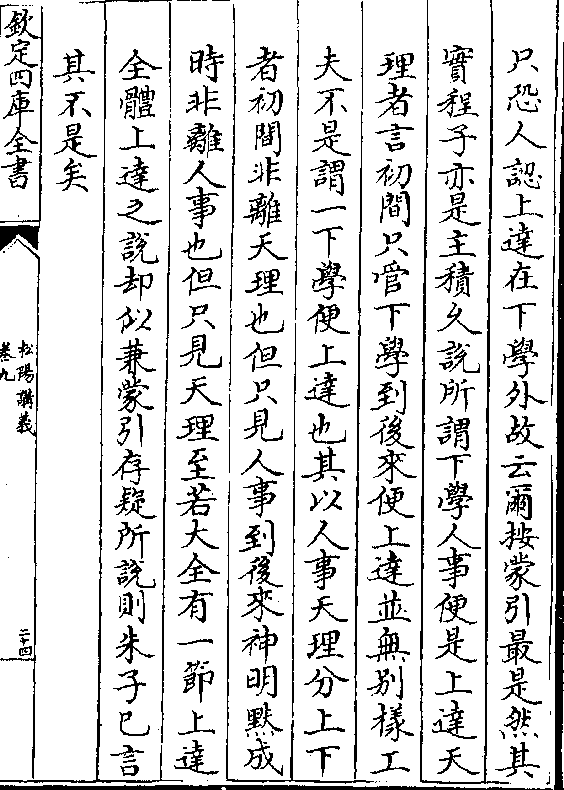 只恐人認上達在下學外故云爾按蒙引最是然其
實程子亦是主積久說所謂下學人事便是上達天
理者言初間只管下學到後來便上達並無别樣工
夫不是謂一下學便上達也其以人事天理分上下
者初間非離天理也但只見人事到後來神明默成
時非離人事也但只見天理至若大全有一節上達
全體上達之說却似兼蒙引存疑所說則朱子已言
其不是矣
欽定四庫全書
松陽講義
卷九
二十四